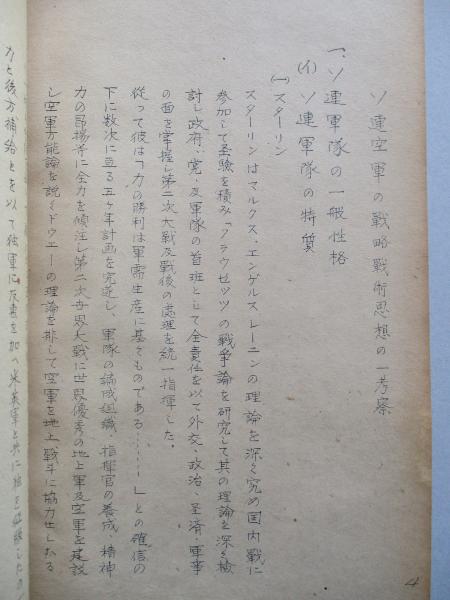 ソ連空軍の戦略戦術思想の一考察
一、ソ連軍隊の一般性格
(イ) ソ連軍隊の特質
(一) スターリン
スターリンはマルクス、エンゲルス、レーニンの理論を深く究め国内戦に
参加して圣驗を積み「クラウゼッツ」の戦争論を研究して其の理論を深く檢
討し政府、党及軍隊の首班として全責任を以て外交、政治、圣済、軍事
の面を掌握し第二次大戦及戦後の處理を統一指揮した。
従って彼は「力の勝利は軍需生産に基くものである……」との確信の
下に数次に亘る五ヶ年計画を完遂し、軍隊の編成組織、指揮官の養成、精神
力の昂揚等に全力を傾注し第二次世界大戦に世界優秀の地上軍及空軍を建設
し空軍万能論を説くドウエーの理論を排して空軍を地上戦斗に協力せしむる
力と後方補給とを以て独軍に反撃を加へ米英軍と共に独を
4